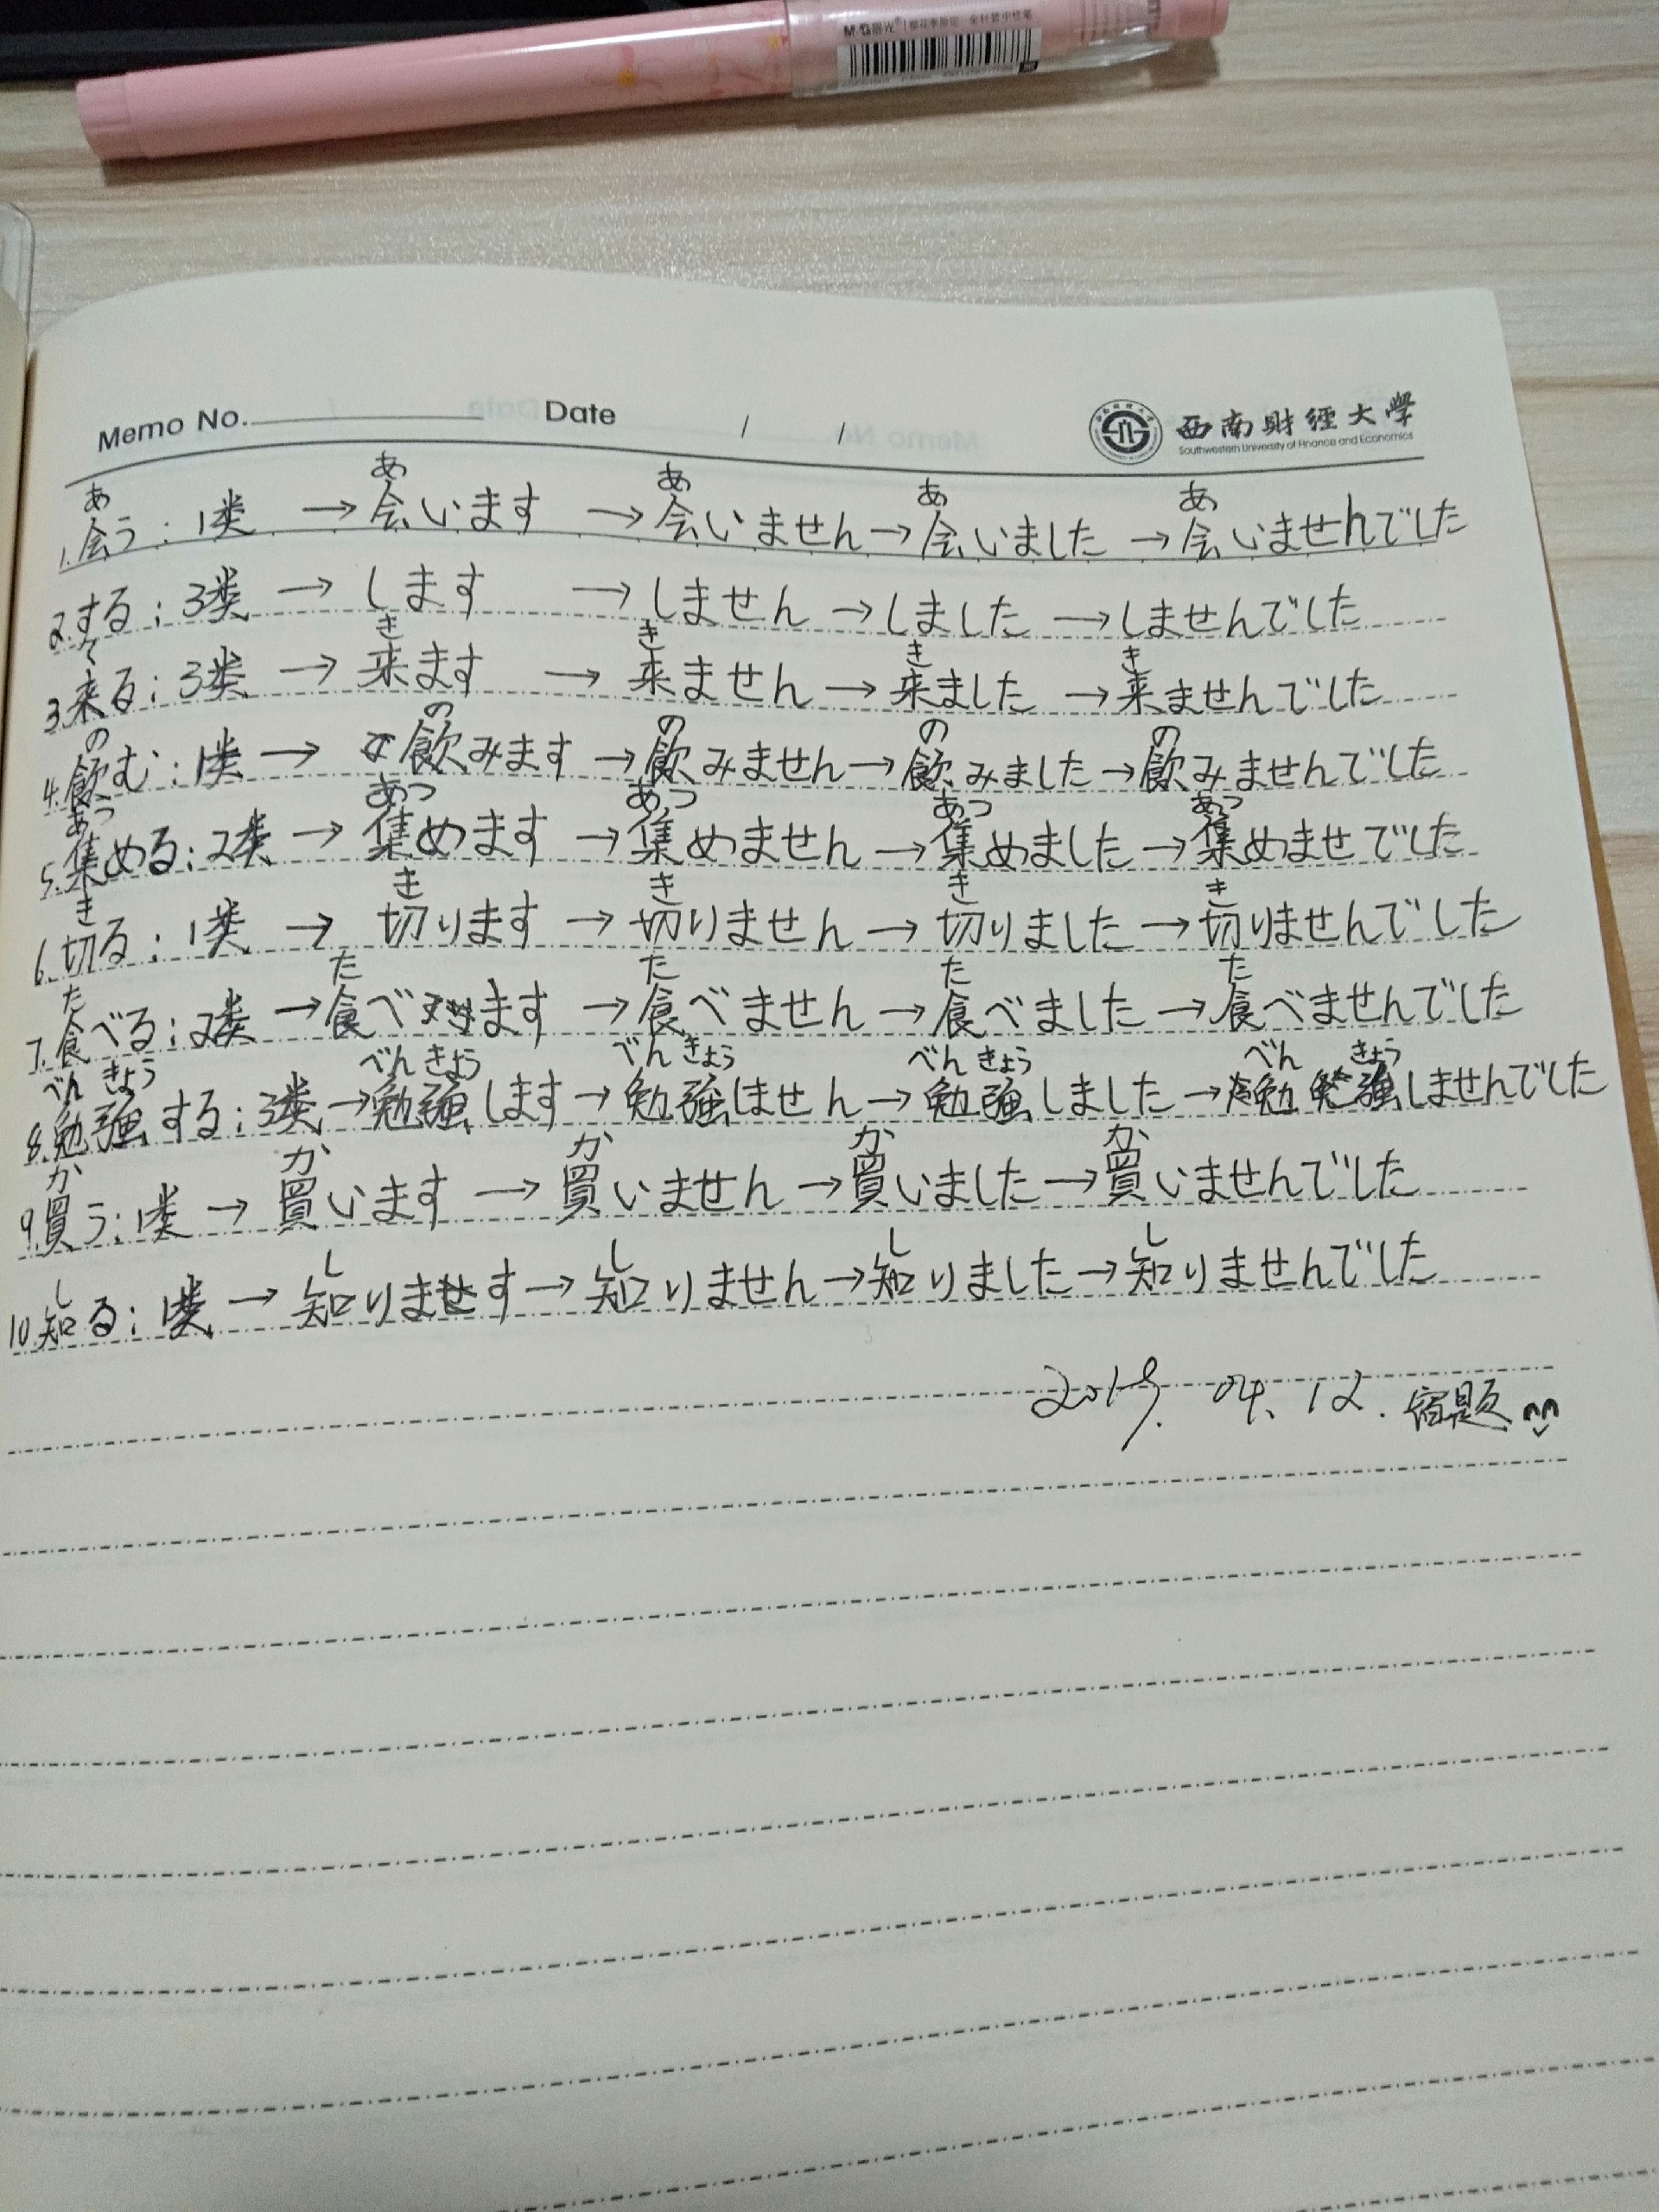 M&G晨光
Memo No. Date / /
西南財經大學
Southwestern University of Finance and Economics
あ あ あ あ あ
1.会う:1类 →会います →会いません→会いました →会いませんでした
2する:3类 → します →しません →しました →しませんでした
く き き き き
3.来る:3类 → 来ます → 来ません→来ました →来ませんでした
の の の の の
4.飲む:1类 → 飲みます →飲みません→飲みました→飲みませんでした
あつ あつ あつ あつ あつ
5.集める:2类 → 集めます →集めません →集めました→集めませでした
き き き き き
6.切る:1类 → 切ります →切りません →切りました →切りませんでした
た た た た た
7.食べる:2类 →食べます →食べません →食べました →食べませんでした
べん きょう べんきょう べんきょう べん きょう べん きょう
8.勉強する:3类→勉強します→勉強しません→勉強しました→勉強しませんでした
か か か か か
9.買う:1类 → 買います →買いません→買いました→買いませんでした
し し し し し
10知る:1类 → 知ります→知りません→知りました→知りませんでした
2019.04.12.宿题